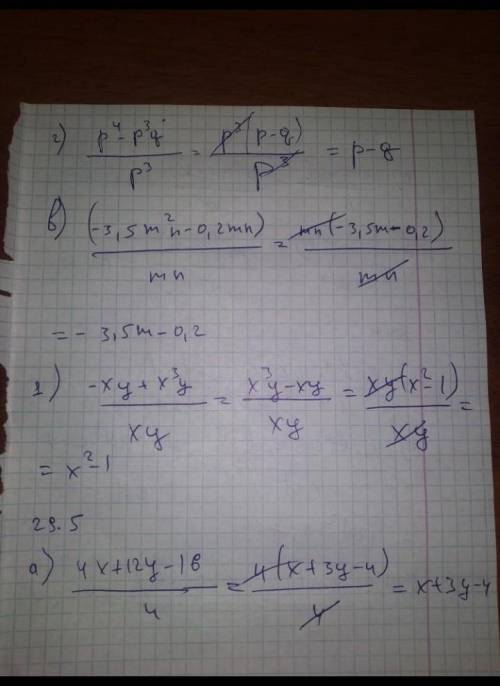 г) (p⁴ - p³q)/p³ = p³(p-q)/p³ = p-q
в) (-3,5m²n-0,2mn)/mn = mn(-3,5m-0,2)/mn
= - 3,5m-0,2
г) (-xy + x³y)/xy = (x³y-xy)/xy = xy(x²-1)/xy =
= x²-1
29.5
а) (4x+12y-16)/4 = 4(x+3y-4)/4 = x+3y-4